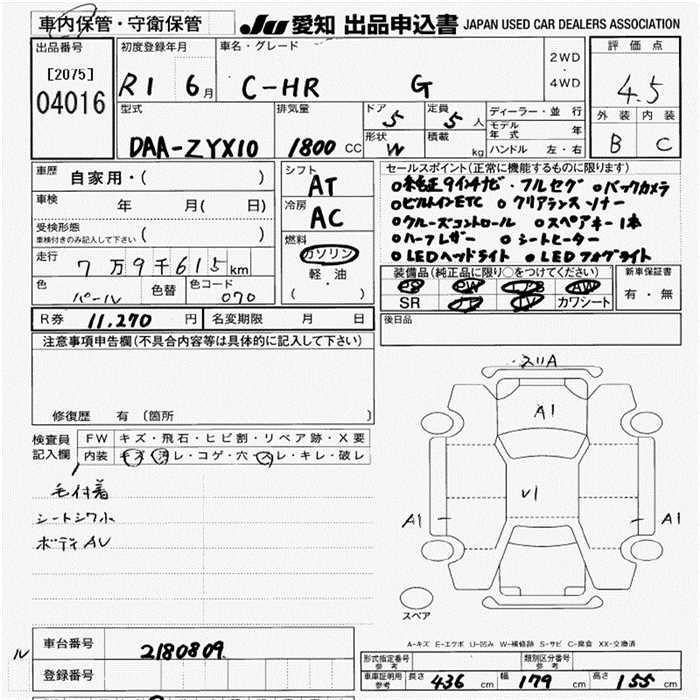 車内保管・守衛保管
JU 愛知 出品申込書 JAPAN USED CAR DEALERS ASSOCIATION
出品番号
[2075]
04016
初度登録年月
R1 6月
車名・グレード
C-HR G
2WD
・
4WD
評価点
4.5
外装 内装
B C
型式
DAA-ZYX10
排気量
1800 CC
ドア
5
定員
5人
形状
W
積載
kg
ディーラー・並行
モデル年式 年
ハンドル 左・右
車歴
自家用・( )
車検
年 月( 日)
受検形態
車検付きのみ記入して下さい ( )
走行
7万9千615km
色
パール
色替
色コード
070
シフト
AT
冷房
AC
燃料
ガソリン
軽・油
( ・ )
セールスポイント(正常に機能するものに限ります)
○本毛正9インチナビ・フルセグ ○バックカメラ
○ビルトインETC ○クリアランスソナー
○クルーズコントロール ○スペアキー1本
○ハーフレザー ○シートヒーター
○LEDヘッドライト ○LEDフォグライト
装備品(純正品に限り○をつけてください)
PS PW AW
SR TV カワシート
新車保証書
有・無
R券 11,270円
名変期限 月 日
後日品
注意事項申告欄(不具合内容等は具体的に記入して下さい)
修復歴 有 〔箇所 〕
検査員記入欄
FW キズ・飛石・ヒビ割・リペア跡・X要
内装 キズ・汚レ・コゲ・穴・スレ・キレ・破レ
毛付着
シートシワ小
ボディAU
スリA
A1
U1
A1
A1
スペア
A-キズ E-エクボ U-凹み W-補修跡 S-サビ C-腐食 XX-交換済
ル
車台番号
2180809
登録番号
形式指定番号
参考
類別区分番号
参考
車庫証明用
参考
長さ 436 cm 幅 179 cm 高さ 155 cm